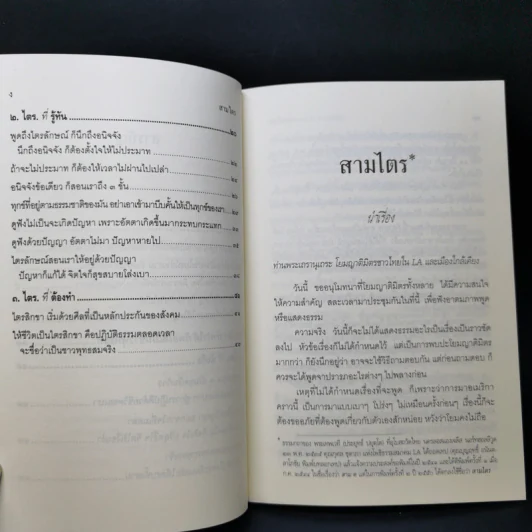 ง
สามไตร
๒. ไตร. ที่ รู้ทัน
พูดถึงไตรลักษณ์ ก็นึกถึงอนิจจัง
นึกถึงอนิจจัง ก็ต้องตั้งใจให้ไม่ประมาท
ถ้าจะไม่ประมาท ก็ต้องให้เวลาไม่ผ่านไปเปล่า
อนิจจังข้อเดียว ก็สอนเราถึง ๓ ชั้น
ทุกข์ที่อยู่ตามธรรมชาติของมัน อย่าเอาเข้ามาบีบคั้นให้เป็นทุกข์ของเรา
ดูฟังไม่เป็นจะเกิดปัญหา เพราะอัตตาเกิดขึ้นมากระทบกระแทก
ดูฟังด้วยปัญญา อัตตาไม่มา ปัญหาหายไป
ไตรลักษณ์สอนเราให้อยู่ด้วยปัญญา
ปัญหาก็แก้ได้ จิตใจก็สุขสบายโล่งเบา
๓. ไตร. ที่ ต้องทำ
ไตรสิกขา เริ่มด้วยศีลที่เป็นหลักประกันของสังคม
ให้ชีวิตเป็นไตรสิกขา คือปฏิบัติธรรมตลอดเวลา
จะชื่อว่าเป็นชาวพุทธสมจริง
สามไตร*
นำเรื่อง
ท่านพระเถรานุเถระ โยมญาติมิตรชาวไทยใน LA และเมืองใกล้เคียง
วันนี้ ขออนุโมทนาที่โยมญาติมิตรทั้งหลาย ได้มีความสนใจ
ให้ความสำคัญ สละเวลามาประชุมกันในที่นี้ เพื่อฟังอาตมภาพพูด
หรือแสดงธรรม
ความจริง วันนี้ก็จะไม่ได้แสดงธรรมอะไรเป็นเรื่องเป็นราวชัด
ลงไป หัวข้อเรื่องก็ไม่ได้กำหนดไว้ แต่เป็นการพบปะโยมญาติมิตร
มากกว่า ก็ยังนึกอยู่ว่า อาจจะใช้วิธีถามตอบกัน แต่ก่อนถามตอบ ก็
ควรจะได้พูดจาปราภอะไรต่างๆ ไปพลางก่อน
เหตุที่ไม่ได้กำหนดเรื่องที่จะพูด ก็เพราะว่าการมาอเมริกา
คราวนี้ เป็นการมาแบบเบาๆ โปร่งๆ ไม่เหมือนครั้งก่อนๆ เรื่องนี้ก็จะ
ต้องขออภัยที่ต้องพูดเกี่ยวกับตัวเองสักหน่อย หวังว่าโยมคงไม่ถือ